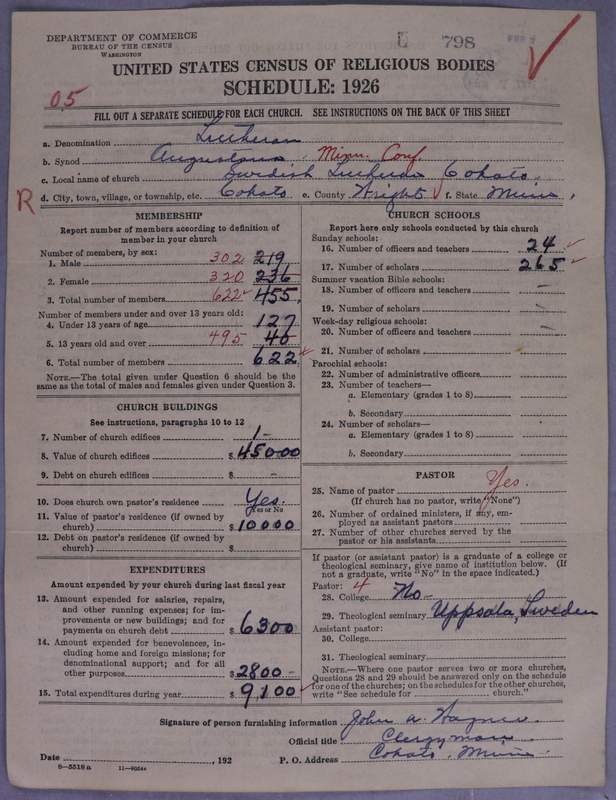 DEPARTMENT OF COMMERCE
BUREAU OF THE CENSUS
WASHINGTON
798
UNITED STATES CENSUS OF RELIGIOUS BODIES
SCHEDULE: 1926
05
FILL OUT A SEPARATE SCHEDULE FOR EACH CHURCH. SEE INSTRUCTIONS ON THE BACK OF THIS SHEET
a. Denomination Lutheran
b. Synod Augustana. Minn. Conf.
c. Local name of church Swedish Lutheran Cokato
R d. City, town, village, or township, etc. Cokato e. County Wright f. State Minn.
MEMBERSHIP
Report number of members according to definition of
member in your church
Number of members, by sex:
1. Male 302 219
2. Female 320 236
3. Total number of members 622 455
Number of members under and over 13 years old:
4. Under 13 years of age 127
5. 13 years old and over 495 40
6. Total number of members 622
NOTE.—The total given under Question 6 should be the
same as the total of males and females given under Question 3.
CHURCH BUILDINGS
See instructions, paragraphs 10 to 12
7. Number of church edifices 1-
8. Value of church edifices $ 45000
9. Debt on church edifices $ -
10. Does church own pastor's residence Yes.
Yes or No
11. Value of pastor's residence (if owned by
church) $ 10000
12. Debt on pastor's residence (if owned by
church) $
EXPENDITURES
Amount expended by your church during last fiscal year
13. Amount expended for salaries, repairs,
and other running expenses; for im-
provements or new buildings; and for
payments on church debt $ 6300
14. Amount expended for benevolences, in-
cluding home and foreign missions; for
denominational support; and for all
other purposes $ 2800-
15. Total expenditures during year $ 9,100
CHURCH SCHOOLS
Report here only schools conducted by this church
Sunday schools:
16. Number of officers and teachers 24
17. Number of scholars 265
Summer vacation Bible schools:
18. Number of officers and teachers -
19. Number of scholars -
Week-day religious schools:
20. Number of officers and teachers -
21. Number of scholars
Parochial schools:
22. Number of administrative officers
23. Number of teachers—
a. Elementary (grades 1 to 8)
b. Secondary
24. Number of scholars—
a. Elementary (grades 1 to 8)
b. Secondary
PASTOR
25. Name of pastor Yes.
(If church has no pastor, write "None")
26. Number of ordained ministers, if any, em-
ployed as assistant pastors
27. Number of other churches served by the
pastor or his assistants
If pastor (or assistant pastor) is a graduate of a college or
theological seminary, give name of institution below. (If
not a graduate, write "No" in the space indicated.)
Pastor: 4
28. College No-
29. Theological seminary Uppsala, Sweden
Assistant pastor:
30. College
31. Theological seminary
NOTE.—Where one pastor serves two or more churches,
Questions 28 and 29 should be answered only on the schedule
for one of the churches; on the schedules for the other churches,
write "See schedule for church."
Signature of person furnishing information John A.
Official title Clergyman
Date , 192 P. O. Address Cokato. Minn.
8—5518a 11—9054a